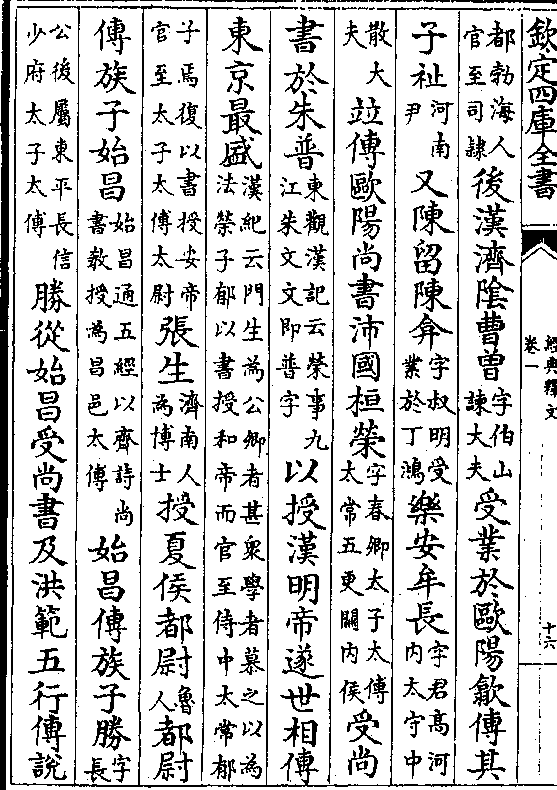 欽定四庫全書
經典釋文
卷一
十六
都勃海人官至司隸後漢濟陰曹曽字伯山諫大夫受業於歐陽歙傳其
子祉河南尹又陳留陳弇字叔明受業於丁鴻樂安牟長字君髙河内太守中
散大夫竝傳歐陽尚書沛國桓榮字春卿太子太傅太常五更關内侯受尚
書於朱普東觀漢記云榮事九江朱文文即普字以授漢明帝遂世相傳
東京最盛漢紀云門生為公卿者甚衆學者慕之以為法榮子郁以書授和帝而官至侍中太常郁
子焉復以書授安帝官至太子太傅太尉張生濟南人為博士授夏侯都尉魯人都尉
傳族子始昌始昌通五經以齊詩尚書教授為昌邑太傅始昌傳族子勝字長
公後屬東平長信少府太子太傅勝從始昌受尚書及洪範五行傳說